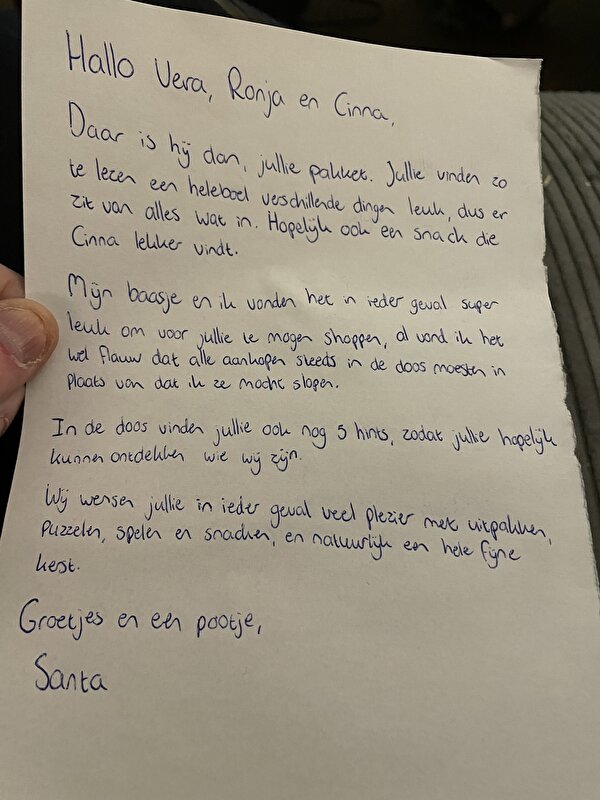 Hallo Vera, Ronja en Cinna,
Daar is hij dan, jullie pakket. Jullie vinden zo
te lezen een heleboel verschillende dingen leuk, dus er
zit van alles wat in. Hopelijk ook een snack die
Cinna lekker vindt.
Mijn baasje en ik vonden het in ieder geval super
leuk om voor jullie te mogen shoppen, al vond ik het
wel flauw dat alle aankopen steeds in de doos moesten in
plaats van dat ik ze mocht slopen.
In de doos vinden jullie ook nog 5 hints, zodat jullie hopelijk
kunnen ontdekken wie wij zijn.
Wij wensen jullie in ieder geval veel plezier met uitpakken,
puzzelen, spelen en snacken, en natuurlijk een hele fijne
kerst.
Groetjes en een pootje,
Santa